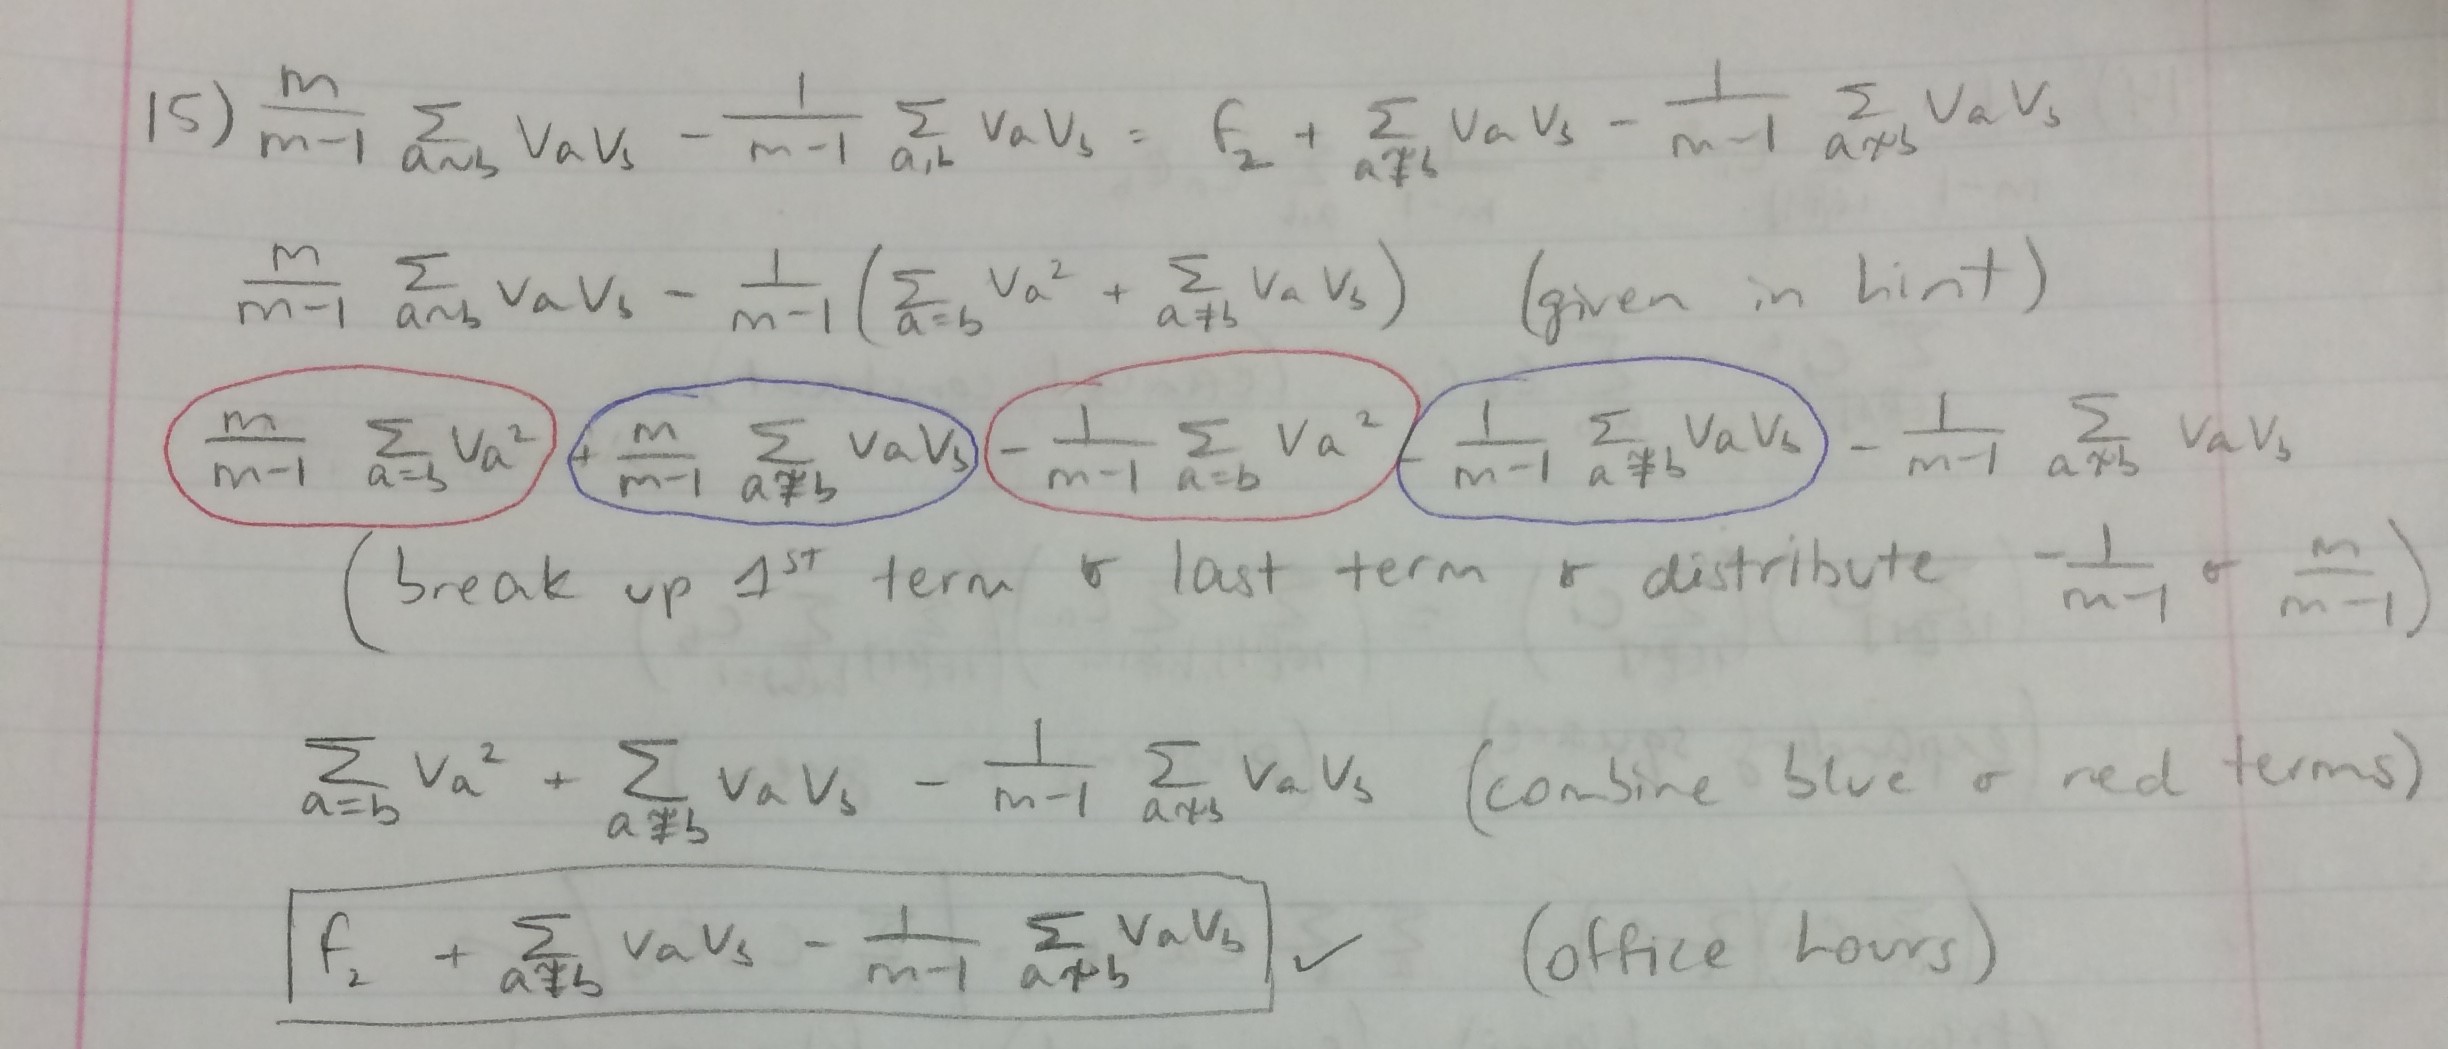 15) m/(m-1) Σ_{a~b} VaVb - 1/(m-1) Σ_{a,b} VaVb = F₂ + Σ_{a≁b} VaVb - 1/(m-1) Σ_{a≁b} VaVb
m/(m-1) Σ_{a~b} VaVb - 1/(m-1) (Σ_{a=b} Va² + Σ_{a≠b} VaVb) (given in hint)
m/(m-1) Σ_{a=b} Va² + m/(m-1) Σ_{a≁b} VaVb - 1/(m-1) Σ_{a=b} Va² - 1/(m-1) Σ_{a≁b} VaVb - 1/(m-1) Σ_{a≁b} VaVb
(break up 1ST term & last term & distribute -1/(m-1) & m/(m-1))
Σ_{a=b} Va² + Σ_{a≁b} VaVb - 1/(m-1) Σ_{a≁b} VaVb (combine blue & red terms)
F₂ + Σ_{a≁b} VaVb - 1/(m-1) Σ_{a≁b} VaVb ✓ (office hours)